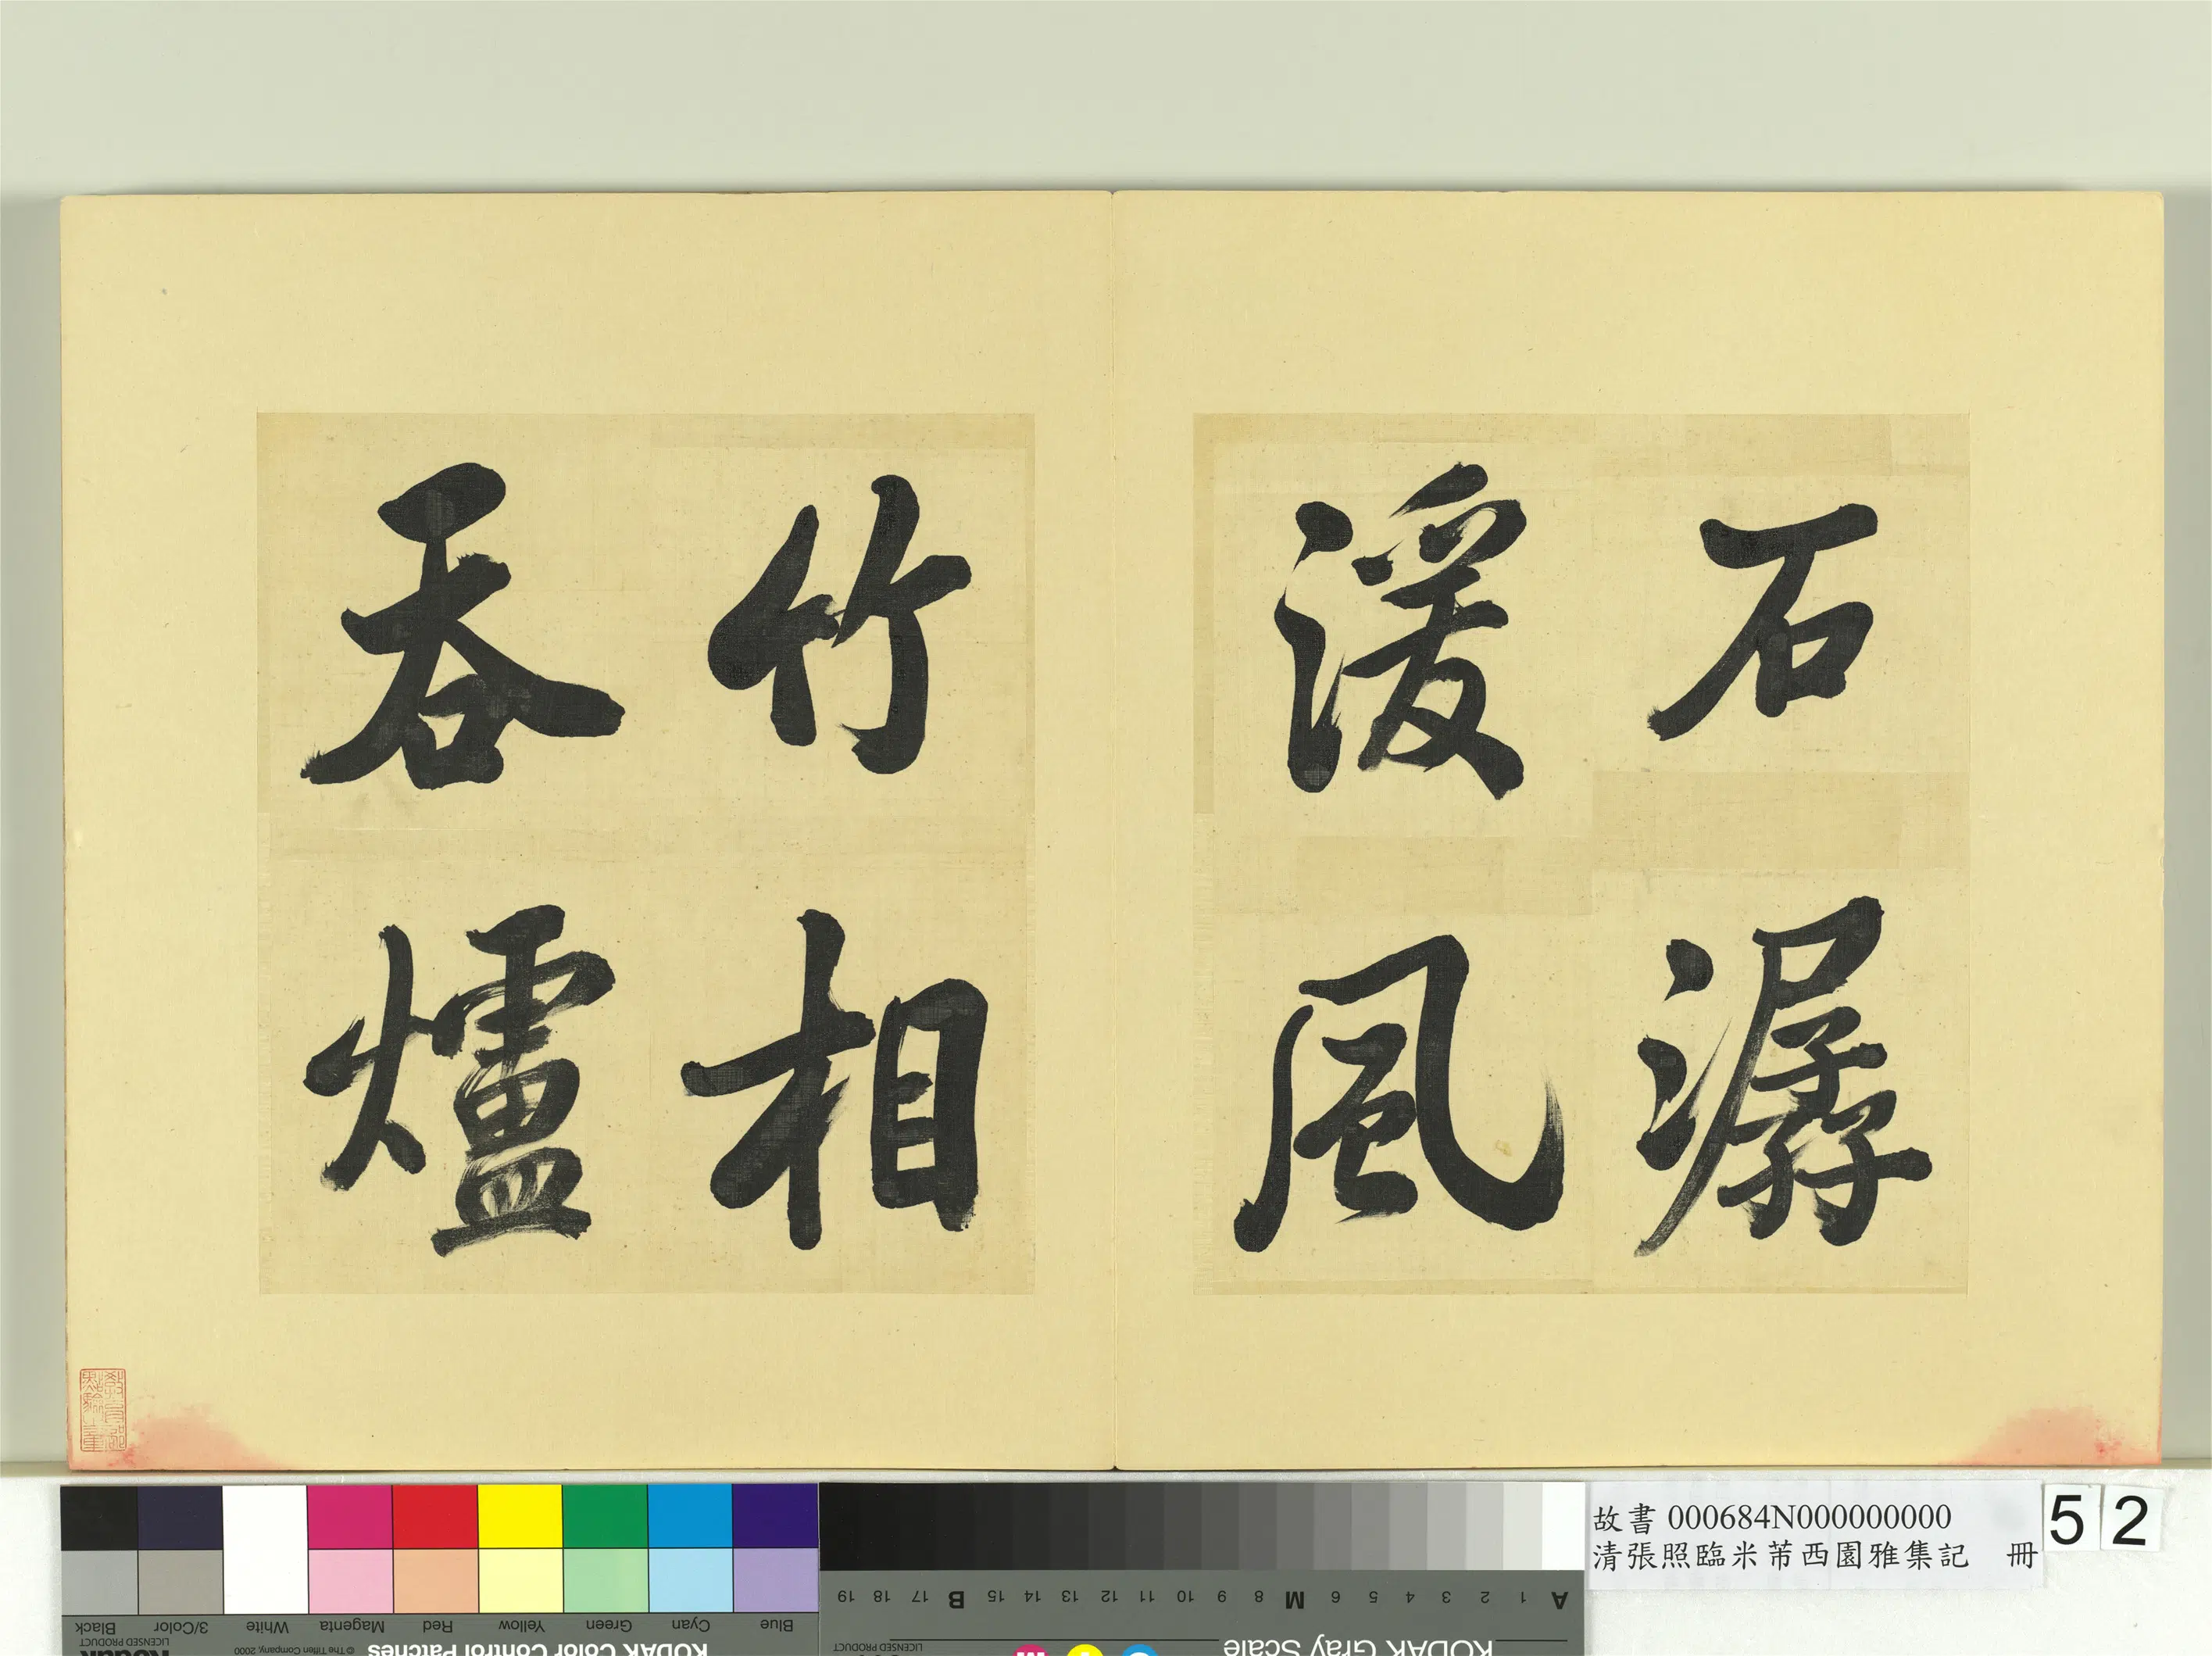 石潺
湲風
竹相
吞爐
教育部
點驗之章
故書 000684N000000000
清張照臨米芾西園雅集記 冊
5 2
Blue Cyan Green Yellow Red Magenta White 3/Color Black
KODAK Color Control Patches
© The Tiffen Company, 2000
Kodak
LICENSED PRODUCT
A 1 2 3 4 5 6 M 8 9 10 11 12 13 14 15 B 17 18 19
KODAK Gray Scale
LICENSED PRODUCT